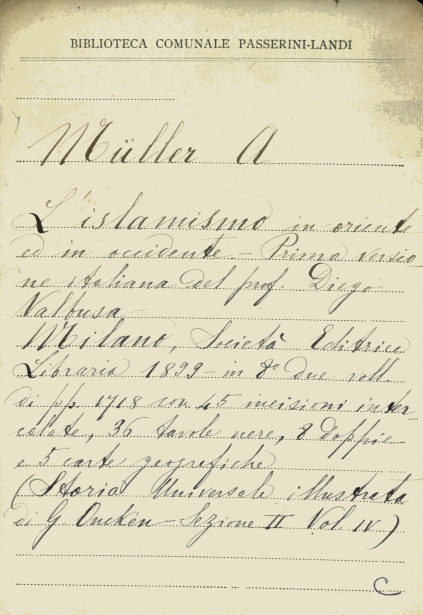 BIBLIOTECA COMUNALE PASSERINI-LANDI
Müller A
L'islamismo in oriente
ed in occidente - Prima versio
ne italiana del prof. Diego
Valbusa
Milano, Società Editrice
Libraria 1899 - in 8° due voll.
di pp. 1718 con 45 incisioni inter-
calate, 36 tavole nere, 8 doppie
e 5 carte geografiche
(Storia Universale illustrata
di G Oncken - Sezione II Vol IV)
C